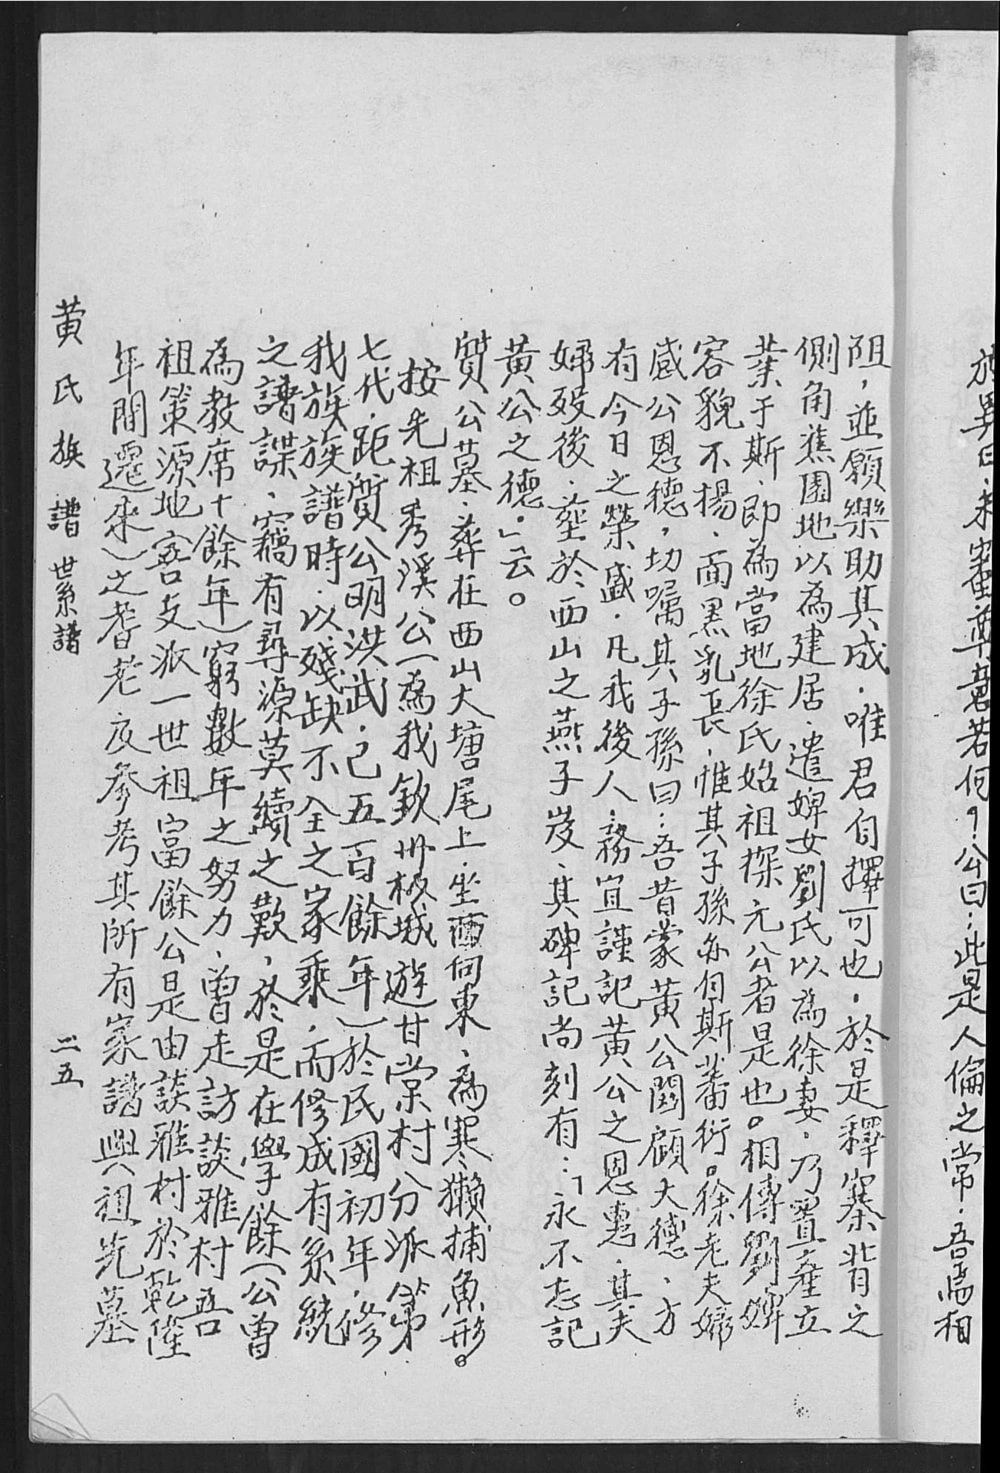 異日,未審尊意若何?公曰:此是人倫之常,吾焉相
阻,並願樂助其成,唯君自擇可也,於是釋寨背之
側角蕉園地以為建居,遣婢女劉氏以為徐妻,乃置產立
業于斯,即為當地徐氏始祖探元公者是也。相傳劉婢
容貌不揚,面黑乳長,惟其子孫亦自斯蕃衍。徐老夫婦
感公恩德,切囑其子孫曰:吾昔蒙黃公關顧大德,方
有今日之榮盛,凡我後人,務宜謹記黃公之恩惠,其夫
婦歿後,塟於西山之燕子岌,其碑記尚刻有:「永不忘記
黃公之德。」云。
質公墓,葬在西山大塘尾上,坐西向東,為寒獺捕魚形。
按先祖秀溪公(為我欽州板城遊甘棠村分派第
七代,距質公明洪武,己五百餘年)於民國初年,修
我族族譜時,以殘缺不全之家乘,而修成有系統
之譜諜,竊有尋源莫續之歎,於是在學餘(公曾
為教席十餘年)窮數年之努力,曾走訪談雅村吾
祖策源地客支派一世祖富餘公是由談雅村於乾隆
年間遷來)之耆老及參考其所有家譜與祖先墓
黃氏族譜 世系譜 二五